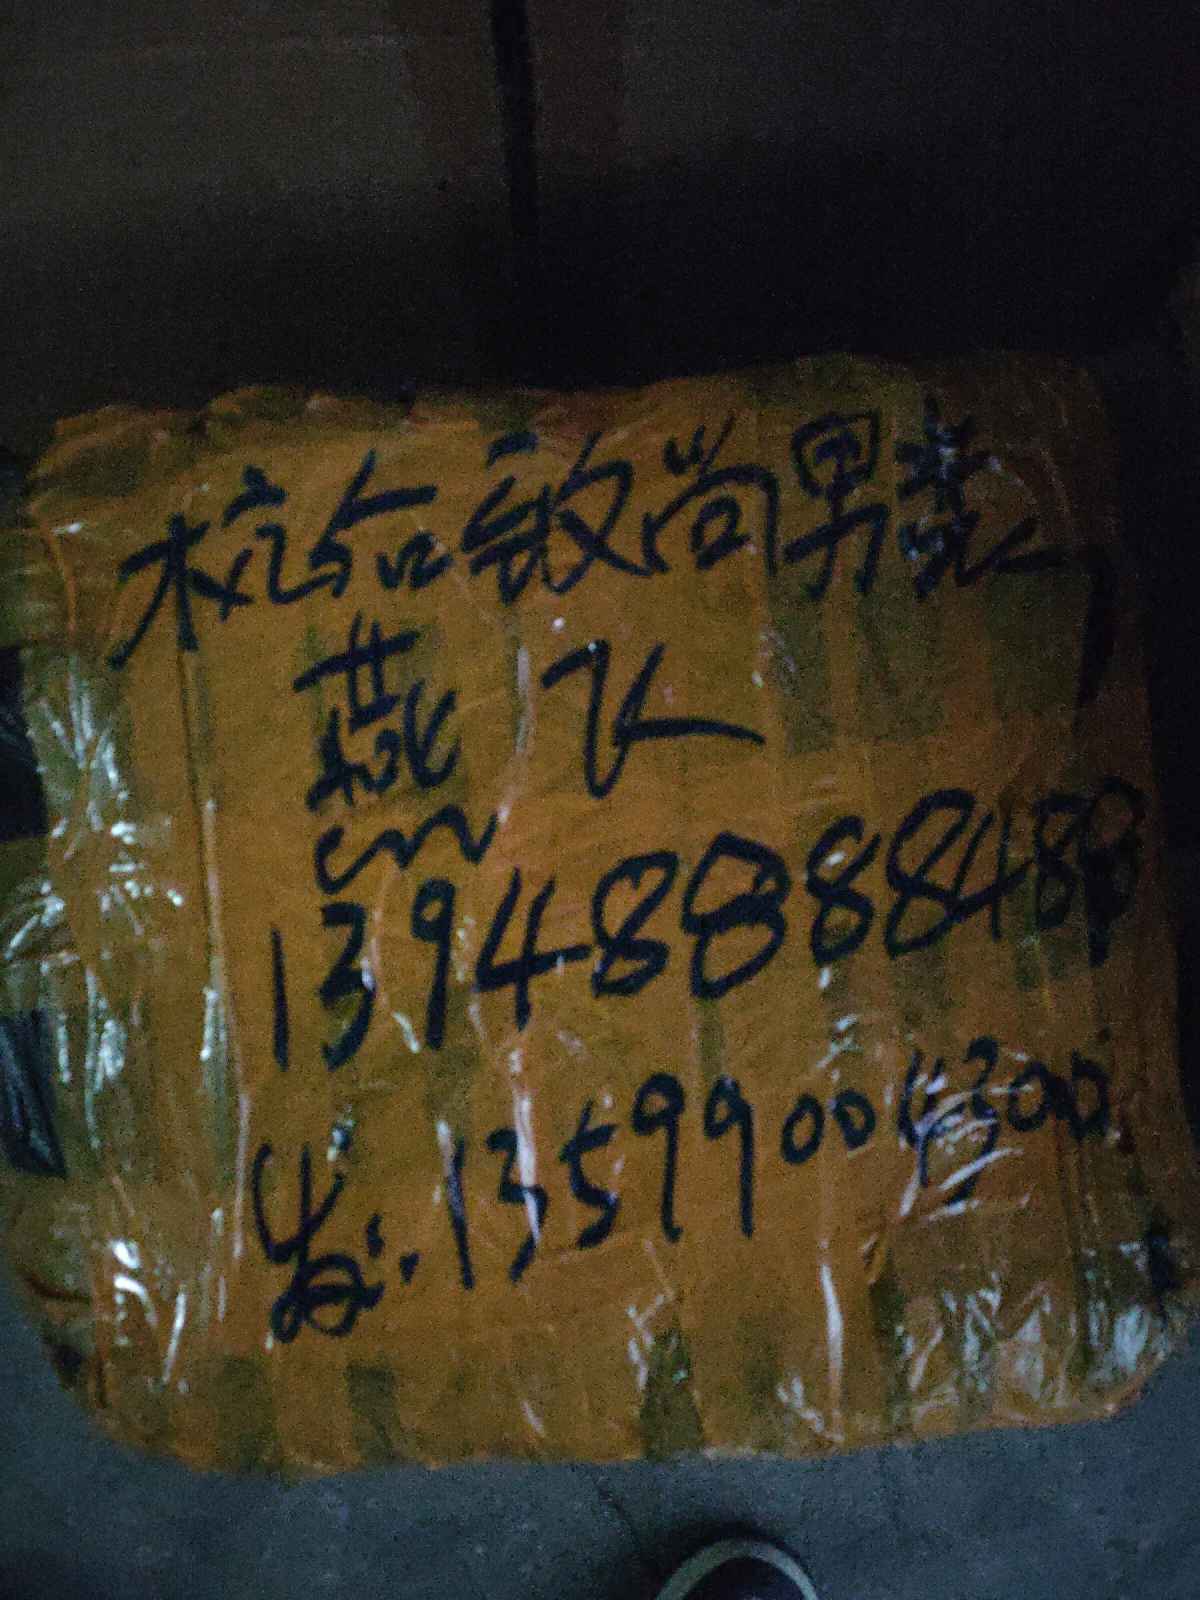 杭合敏尚男装
燕飞
13948888488
发:13599004300